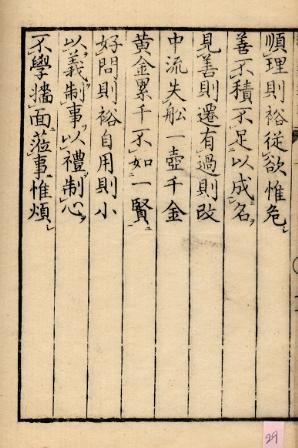 順理則裕從欲惟危
善不積不足以成名
見善則遷有過則改
中流失舩一壺千金
黄金累千不如一賢
好問則裕自用則小
以義制事以禮制心
不學墻面蒞事惟煩
29